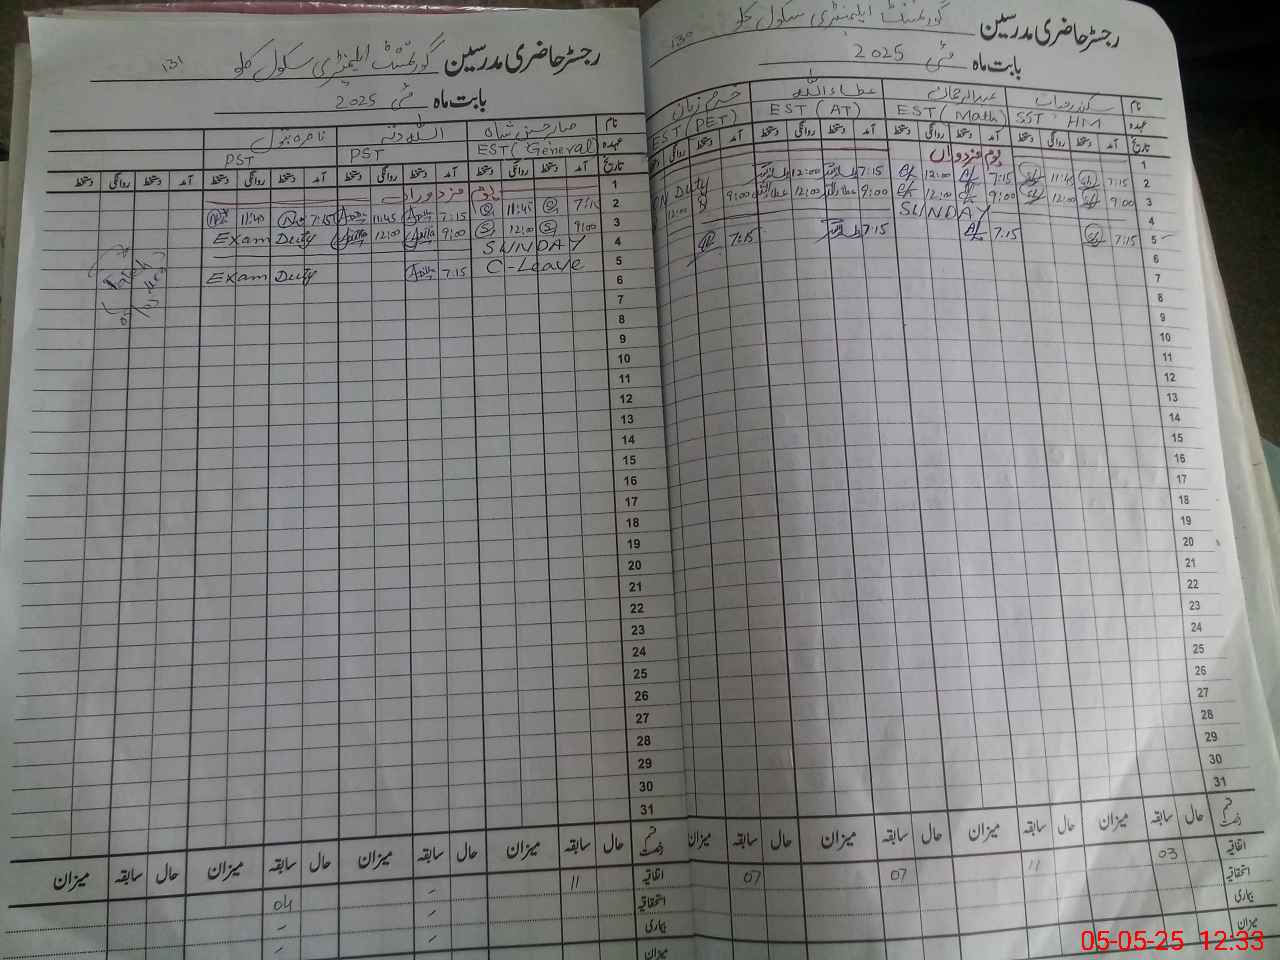 رجسٹر حاضری مدرسین گورنمنٹ ایلیمنٹری سکول
130
بابت ماہ مئی 2025
نام سکندر حیات عبدالرحمان عطاء اللہ
عہدہ SST HM EST (Math) EST (AT) EST (PET)
تاریخ آمد دستخط روانگی دستخط آمد دستخط روانگی دستخط آمد دستخط روانگی دستخط آمد دستخط روانگی
1 یوم مزدوراں
2 7:15 11:45 7:15 12:00 7:15 12:00 ON Duty
3 9:00 12:00 9:00 12:00 9:00 12:00 9:00 12:00
4 SUNDAY
5 7:15 7:15 7:15 7:15
6
7
8
9
10
11
12
13
14
15
16
17
18
19
20
21
22
23
24
25
26
27
28
29
30
31
قسم رخصت حال سابقہ میزان حال سابقہ میزان حال سابقہ میزان حال سابقہ میزان
اتفاقیہ 03 11 07 07
استحقاقیہ
بیماری
میزان
رجسٹر حاضری مدرسین گورنمنٹ ایلیمنٹری سکول
131
بابت ماہ مئی 2025
نام شاہ اللہ دتہ
عہدہ EST (General) PST PST
تاریخ آمد دستخط روانگی دستخط آمد دستخط روانگی دستخط آمد دستخط روانگی دستخط آمد دستخط روانگی دستخط
1 یوم مزدوراں
2 7:15 11:45 7:15 11:45 7:15 11:45
3 9:00 12:00 9:00 12:00 Exam Duty
4 SUNDAY
5 C-Leave 7:15 Exam Duty
6
7
8
9
10
11
12
13
14
15
16
17
18
19
20
21
22
23
24
25
26
27
28
29
30
31
قسم رخصت حال سابقہ میزان حال سابقہ میزان حال سابقہ میزان حال سابقہ میزان
اتفاقیہ 11 - 04
استحقاقیہ - -
بیماری - -
میزان
05-05-25 12:33